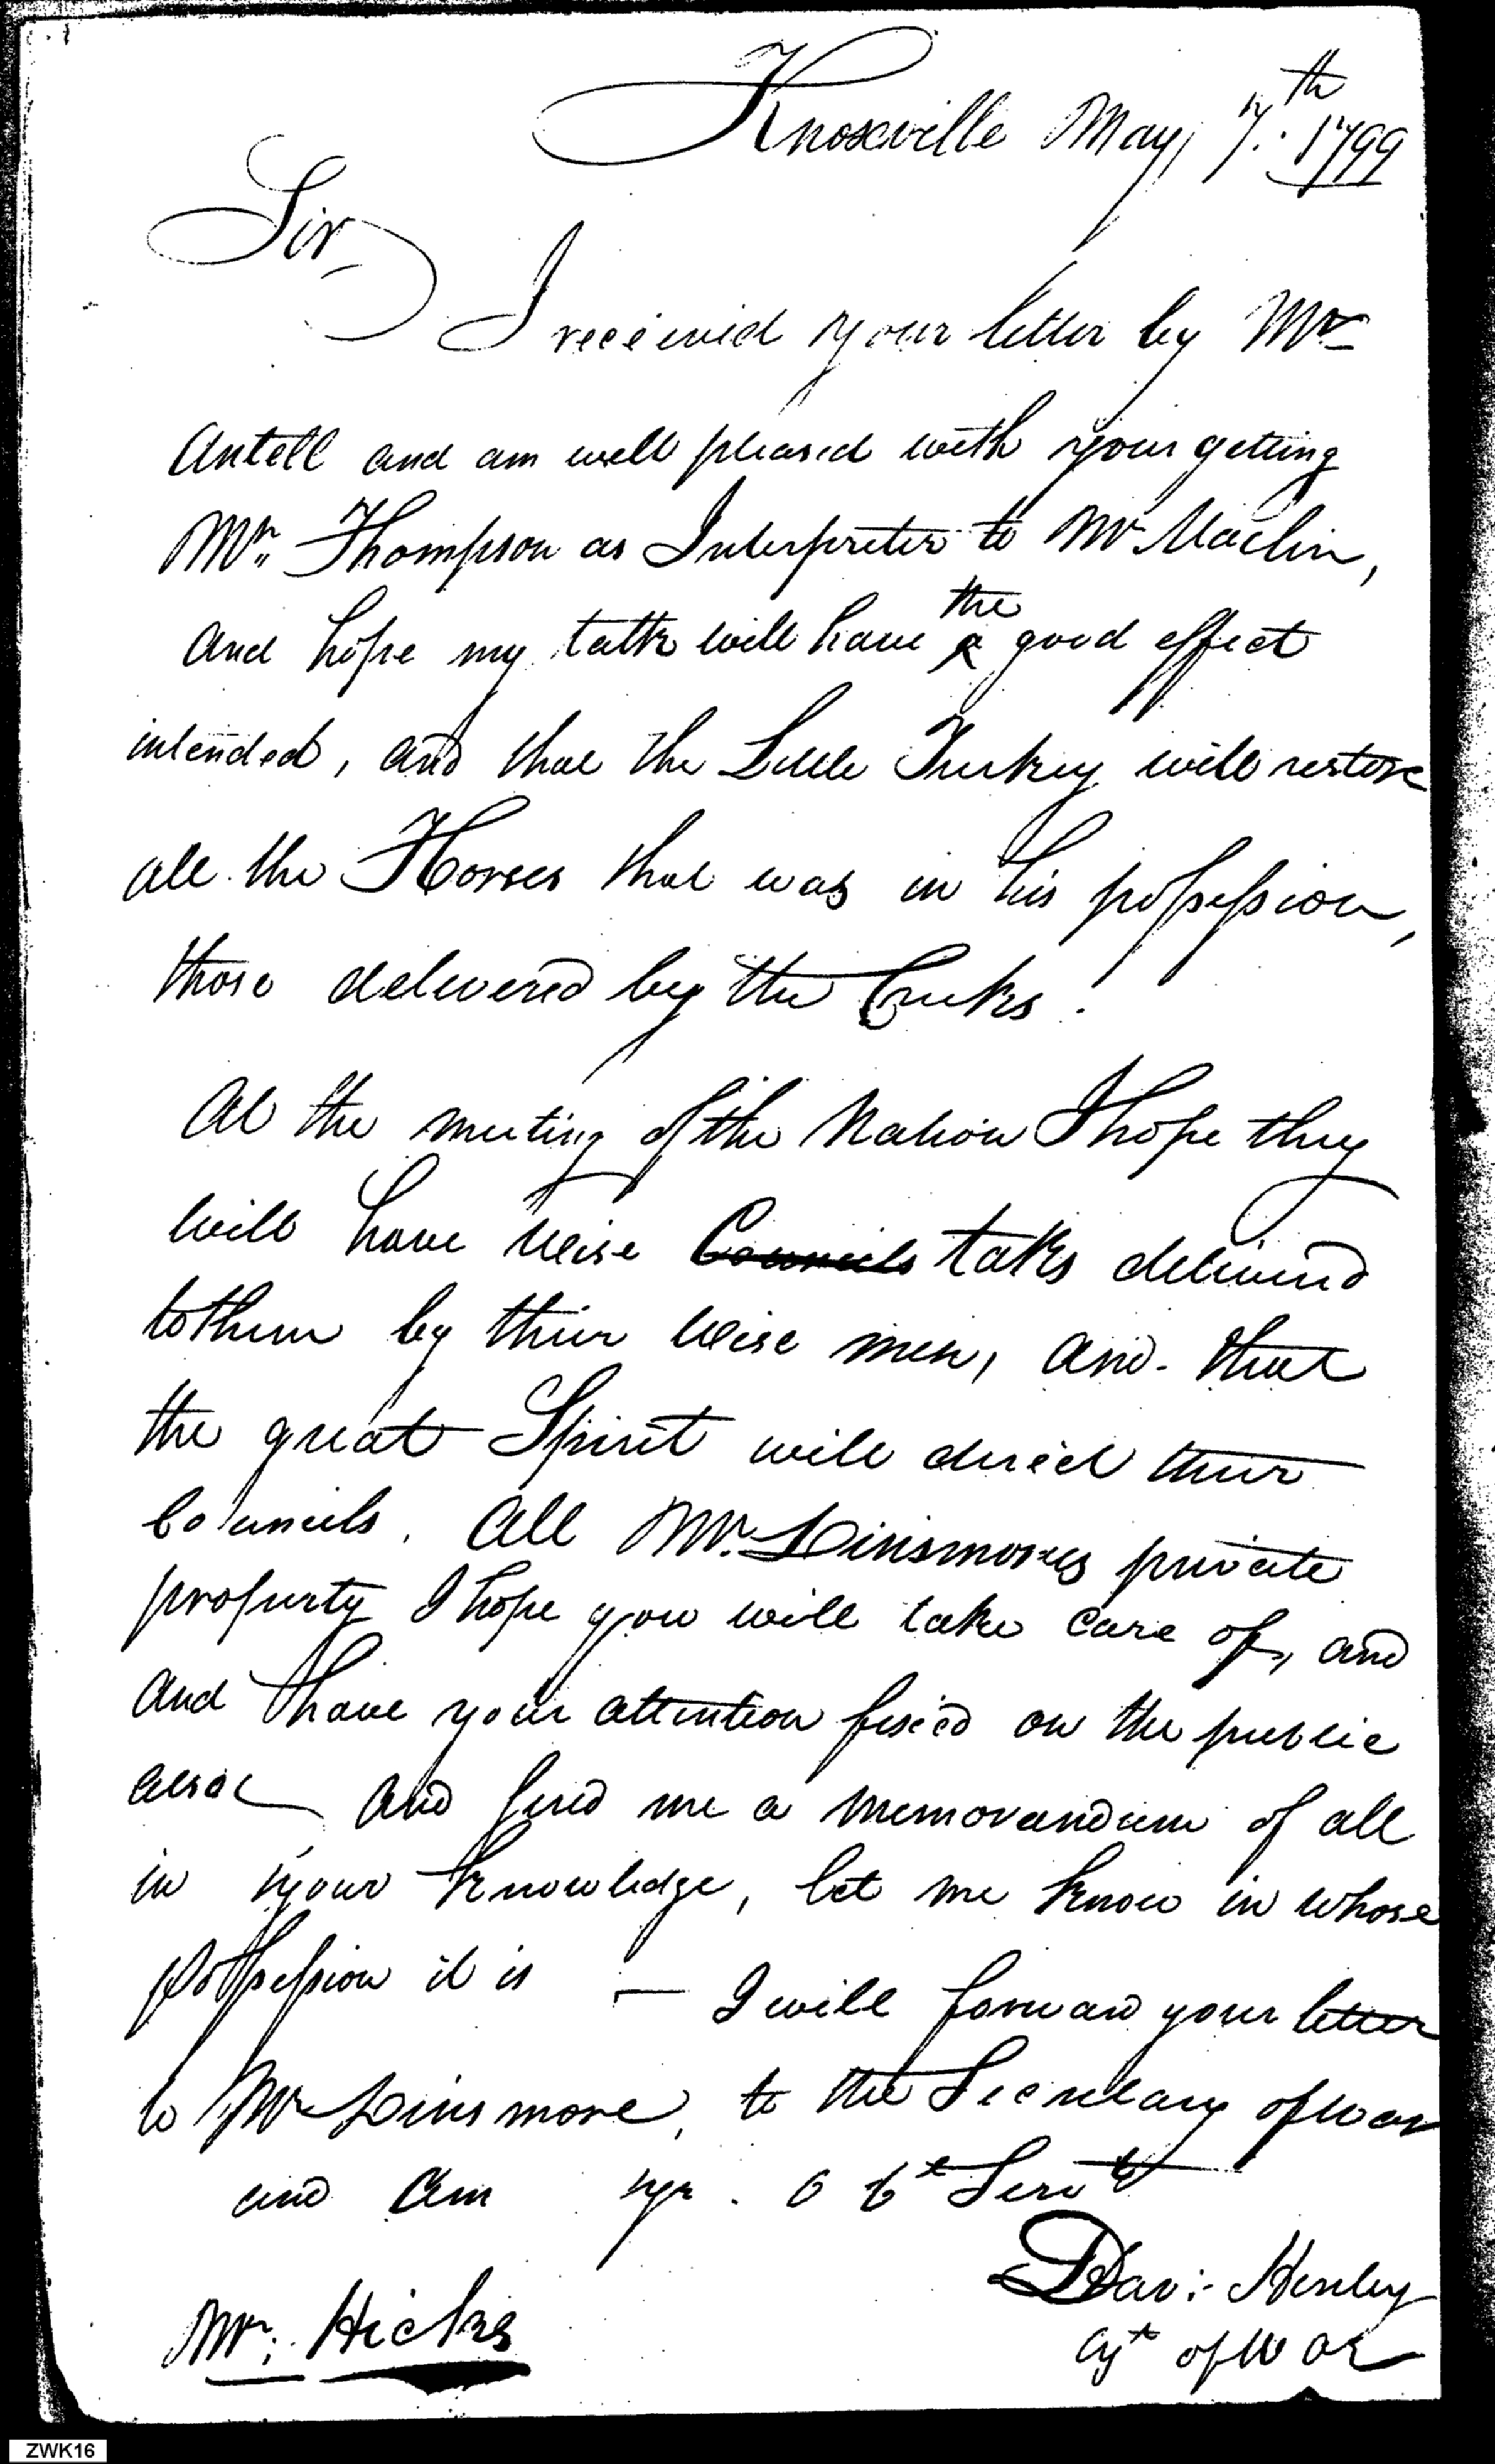 Knoxville May 7.th 1799
Sir,
I received your letter by Mr
Antell and am well pleased with your getting
Mr. Thompson as Interpreter to Mr Maclin,
and hope my talk will have the a good effect
intended, and that the Little Turkey will restore
all the Horses that was in his possession,
those delivered by the Creeks.
At the meeting of the Nation I hope they
will have wise Councils talks delivered
to them by their wise men, and that
the great Spirit will direct their
Councils. All Mr. Dinsmores private
property I hope you will take care of, and
and have your attention fixed on the public
also and send me a memorandum of all
in your knowledge, let me know in whose
possession it is — I will forward your letter
to Mr Dinsmore, to the Secretary of War
and am yr. o bt Servt
Davi: Henley
Agt of War
Mr: Hicks
ZWK16